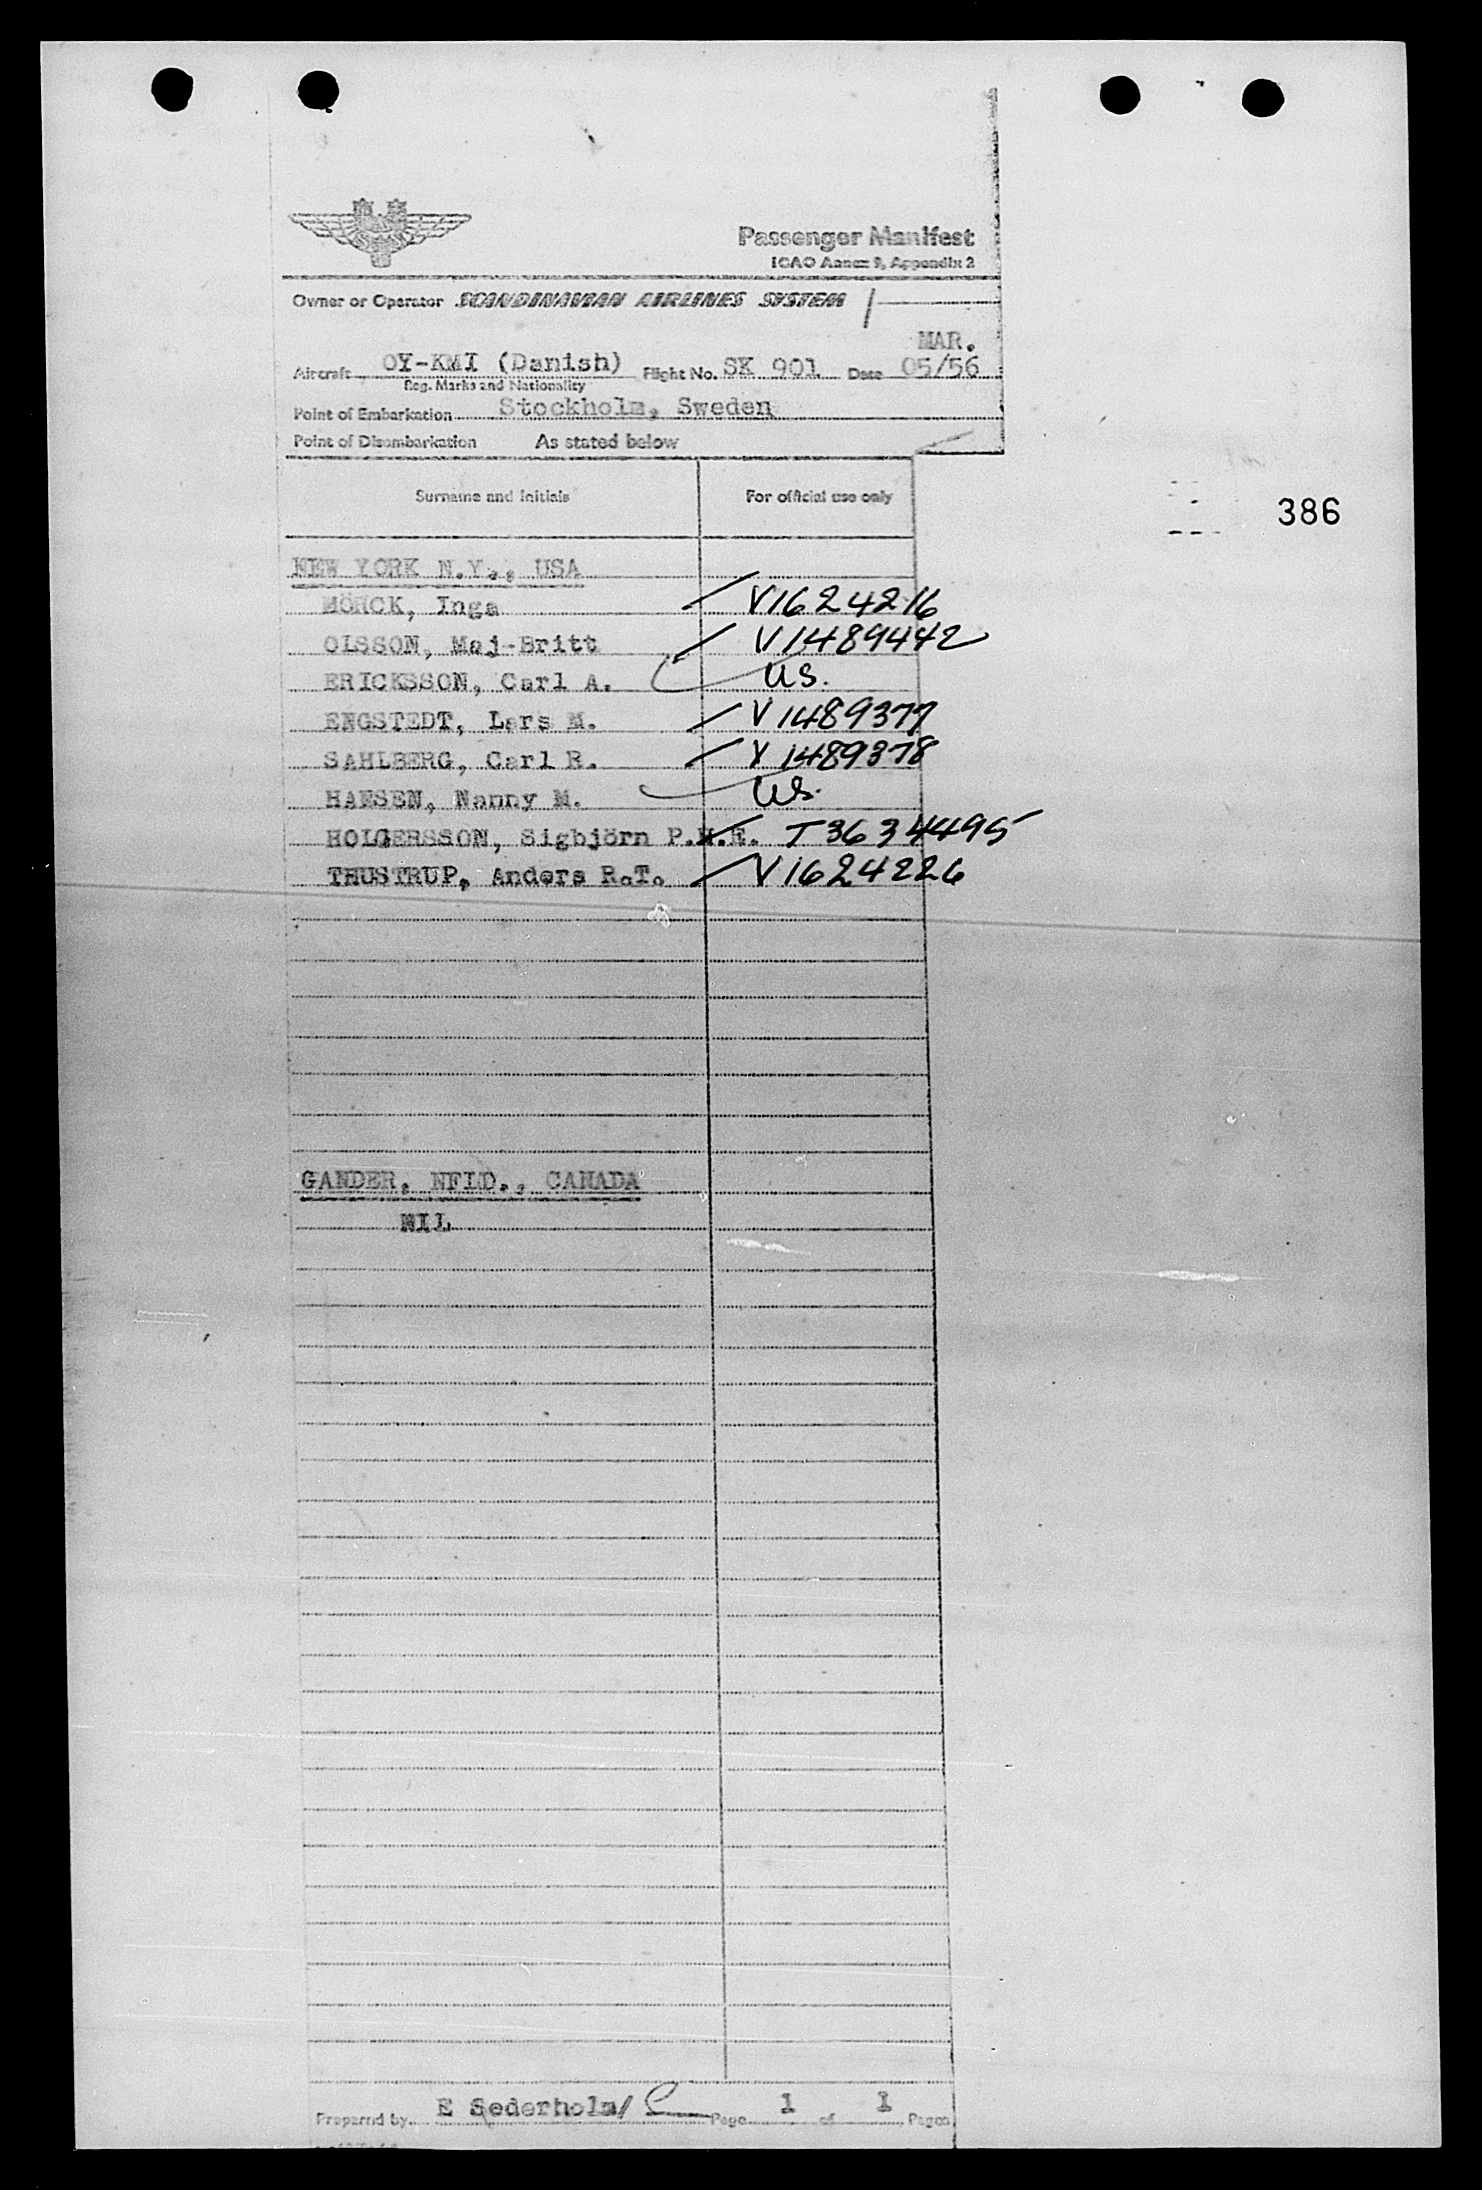 SAS
Passenger Manifest
ICAO Annex 9, Appendix 2
Owner or Operator SCANDINAVIAN AIRLINES SYSTEM
MAR.
Aircraft OY-KMI (Danish) Flight No. SK 901 Date 05/56
Reg. Marks and Nationality
Point of Embarkation Stockholm, Sweden
Point of Disembarkation As stated below
Surname and Initials For official use only
386
NEW YORK N.Y., USA
MÖRCK, Inga V1624216
OLSSON, Maj-Britt V1489442
ERICKSSON, Carl A. US.
ENGSTEDT, Lars M. V1489377
SAHLBERG, Carl R. V1489378
HANSEN, Nanny M. US.
HOLGERSSON, Sigbjörn P.H.E. T3634495
THUSTRUP, Anders R.T. V1624226
GANDER, NFLD., CANADA
NIL
Prepared by E Sederholm/ Page 1 of 1 Pages